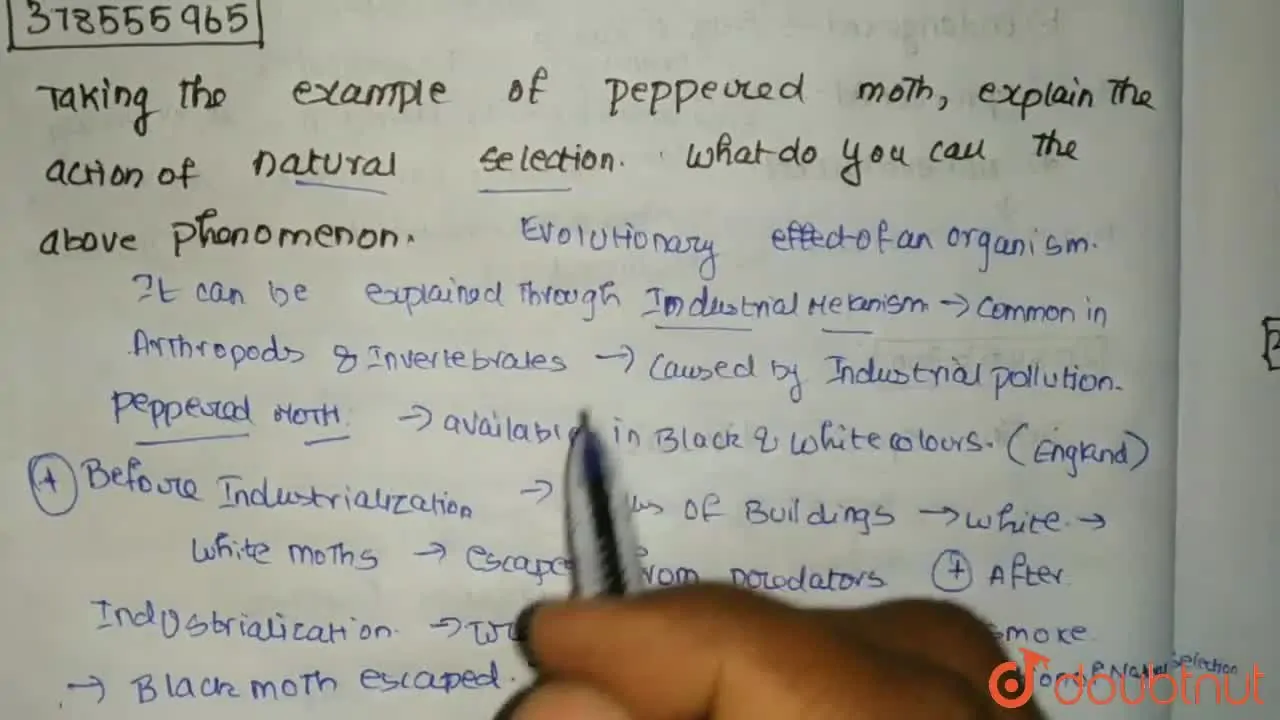 378555965
Taking the example of peppeured moth, explain the
action of natural selection. What do you call the
above phonomenon. Evolutionary effect of an organism.
It can be explained through Industrial Melanism → common in
Arthropods & Invertebrates → caused by Industrial pollution.
peppeured MOTH. → available in Black & white colours. (England)
+ Before Industrialization → of Buildings → white →
white moths → escape from predators + After
Industrialization. → smoke
→ Black moth escaped. Selection
doubtnut